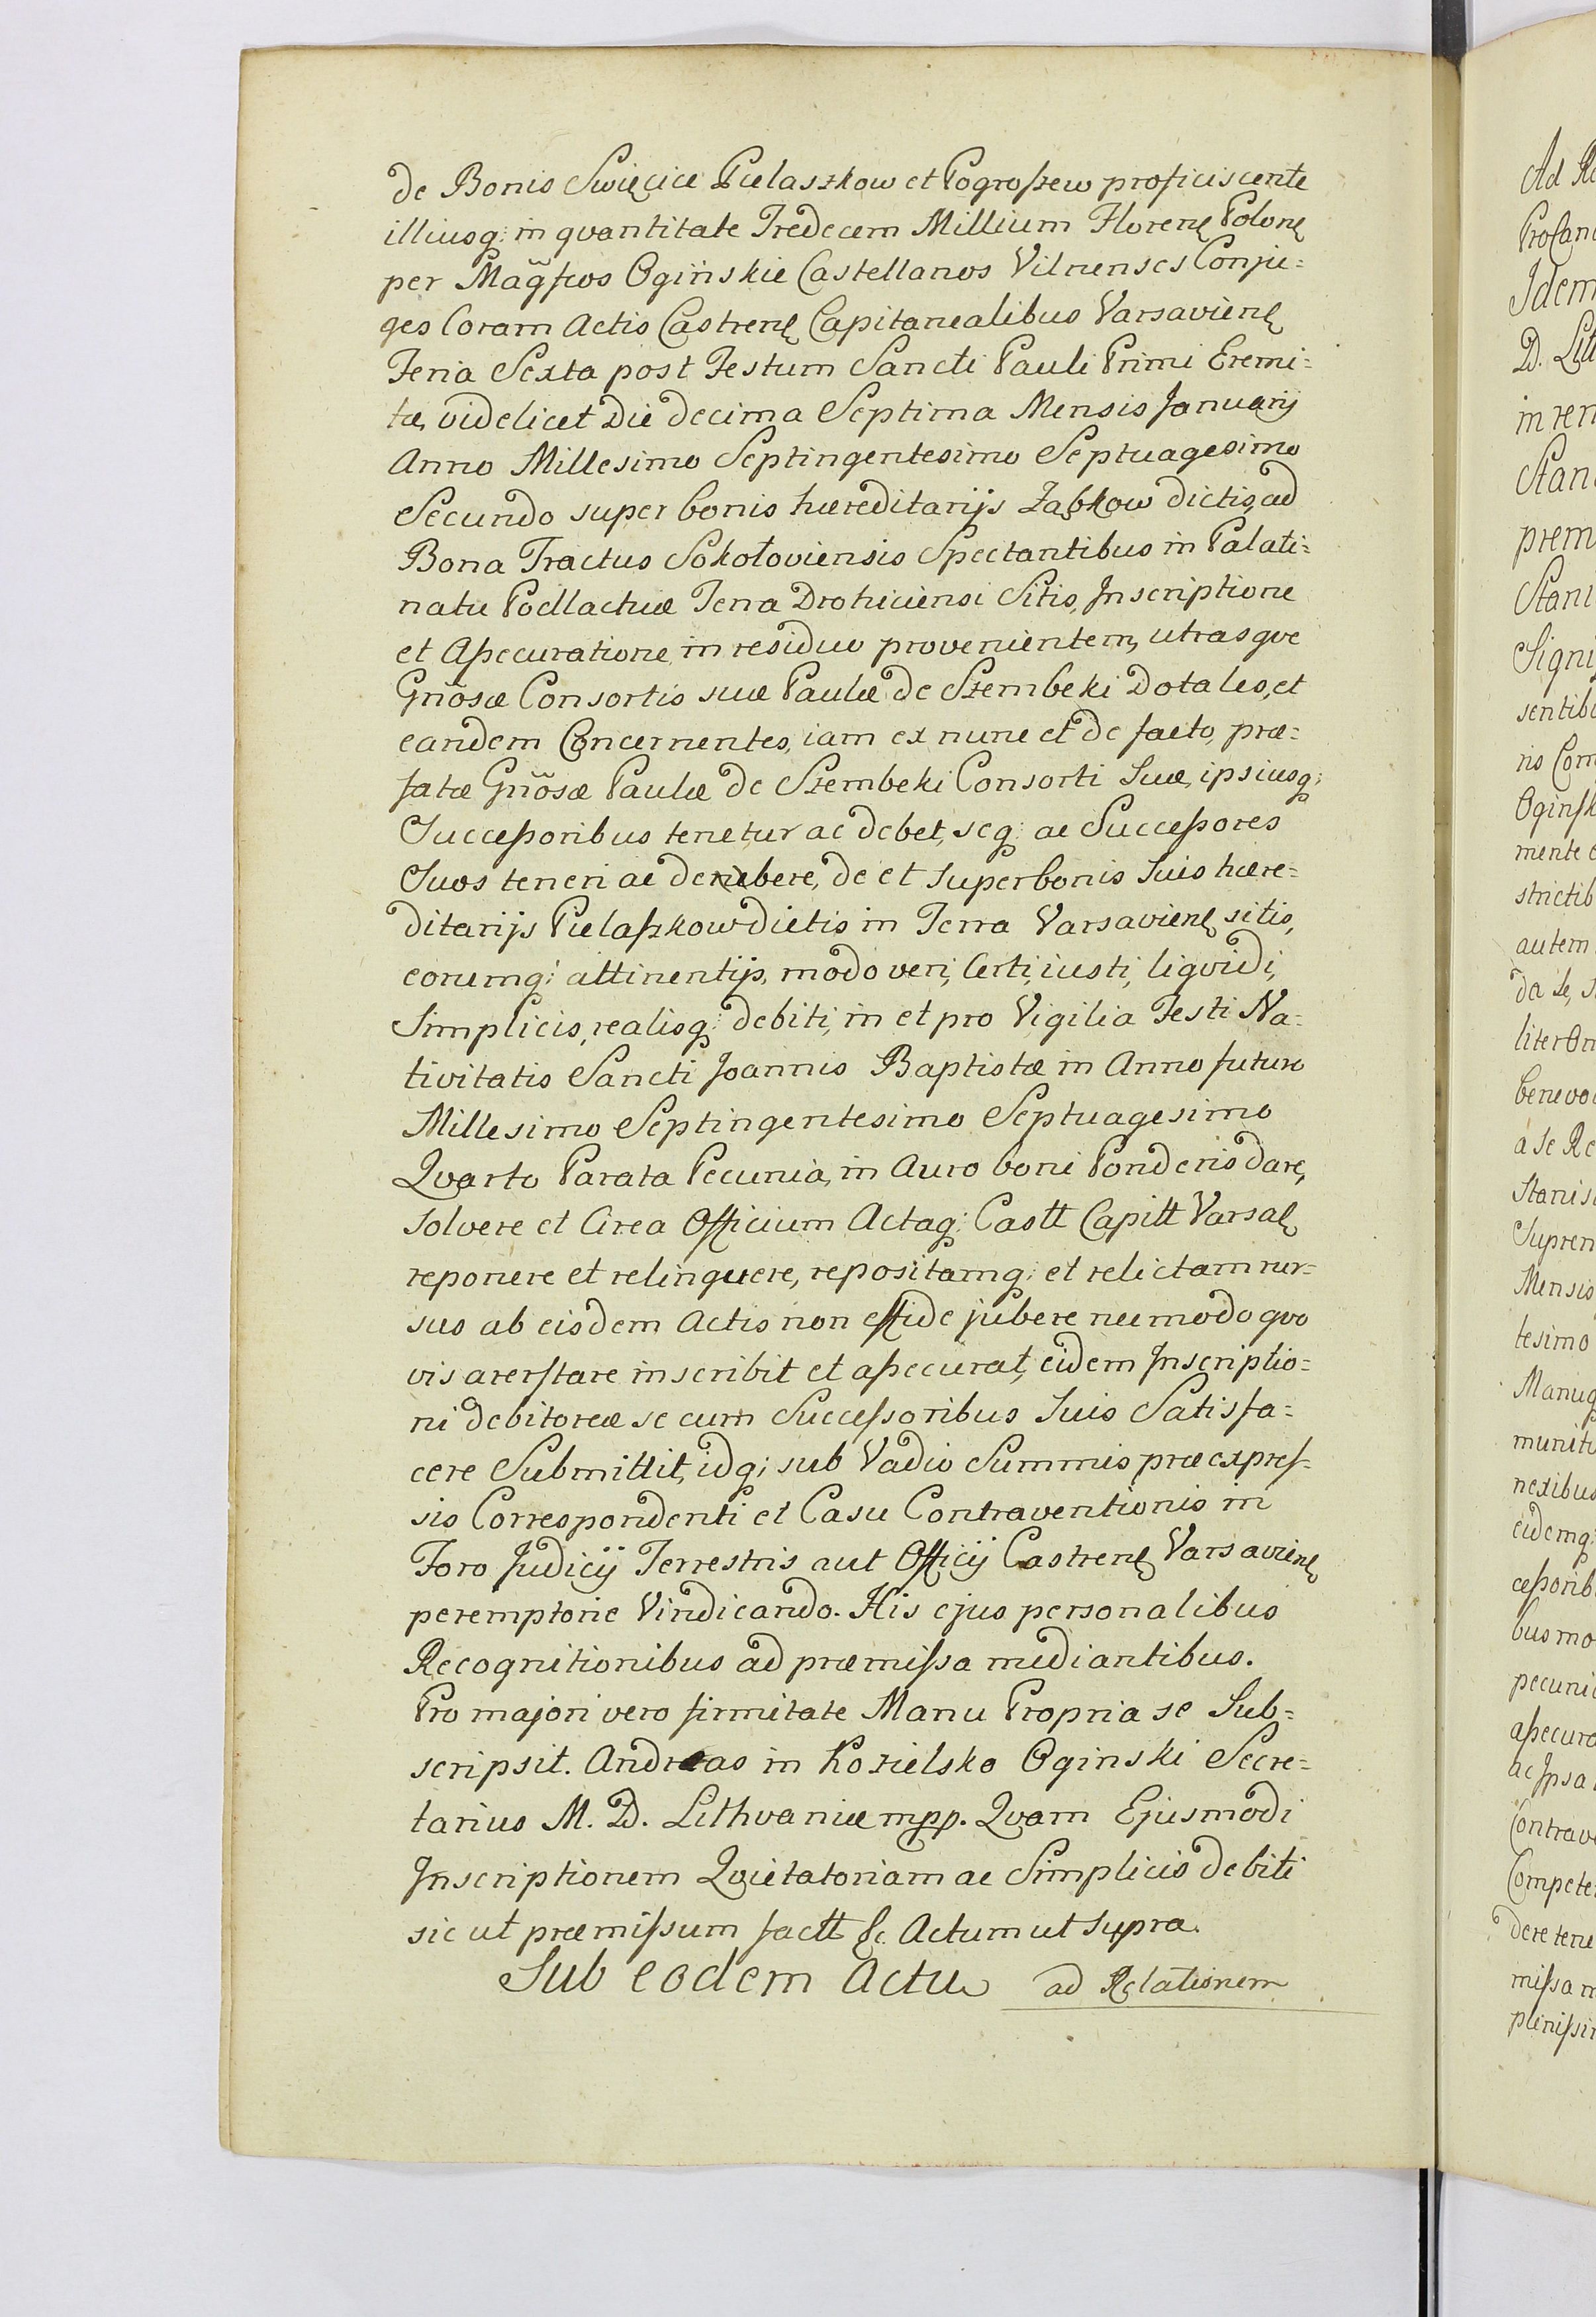 de Bonis Swięcice Pielaszkow et Pogroszew proficiscente
illiusq; in qvantitate Tredecem Millium Floren Polon
per Magficos Oginskie Castellanos Vilnenses Conju=
ges Coram Actis Castren Capitanealibus Varsavien
Feria Sexta post Festum Sancti Pauli Primi Eremi=
tæ, videlicet Die decima Septima Mensis Januarij
Anno Millesimo Septingentesimo Septuagesimo
Secundo super bonis hæreditarijs Ząbkow dictis, ad
Bona Tractus Sokołoviensis Spectantibus in Palati=
natu Podlachiæ Terra Drohiciensi Sitis, Inscriptione
et Assecuratione in residuo provenientem, utrasqve
Gnosæ Consortis suæ Paulæ de Szembeki Dotales, et
eandem Concernentes, iam ex nunc et de facto, præ=
fatæ Gnosæ Paulæ de Szembeki Consorti Suæ, ipsiusq;
Successoribus tenetur ac debet, seq; ac Successores
Suos teneri ac debere, de et super bonis Suis hære=
ditarijs Pielaszkow dictis in Terra Varsavien sitis,
eorumq; attinentijs, modo veri, Certi, iusti, liqvidi,
Simplicis, realisq; debiti, in et pro Vigilia Festi Na=
tivitatis Sancti Joannis Baptistæ in Anno futuro
Millesimo Septingentesimo Septuagesimo
Qvarto Parata Pecunia, in Auro boni Ponderis dare,
solvere et Circa Officium Actaq; Castt Capitt Varsal
reponere et relinquere, repositamq; et relictam rur=
sus ab eisdem Actis non effide jubere nec modo qvo
vis arerstare inscribit et assecurat, eidem Inscriptio=
ni debitoreæ se cum Successoribus Suis Satisfa=
cere Submittit, idq; sub Vadio Summis præexpres=
sis Correspondenti et Casu Contraventionis in
Foro Judicij Terrestris aut Officij Castren Varsavien
peremptorie Vindicando. His ejus personalibus
Recognitionibus ad præmissa mediantibus.
Pro majori vero firmitate Manu Propria se Sub=
scripsit. Andreas in Kozielsko Oginski Secre=
tarius M. D. Lithvaniæ mpp. Qvam Ejusmodi
Inscriptionem Qvietatoriam ac Simplicis debiti
sic ut præmissum factt &c. Actum ut supra.
Sub eodem Actu ad Relationem